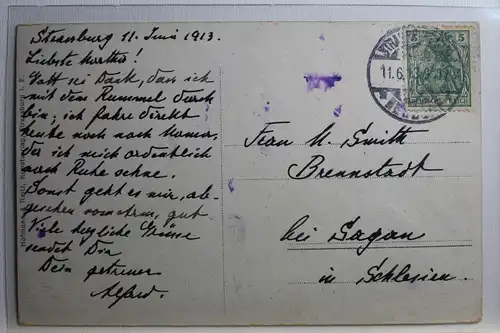 Strassburg 11. Juni 1913.
Liebste Martha!
Gott sei Dank, dass ich
mit dem Rummel durch
bin; ich fahre direkt
heute noch nach
da ich mich ordentlich
nach Ruhe sehne.
Sonst geht es mir, ab-
gesehen vom, gut
Viele herzliche Grüsse
sendet Dir
Dein getreuer
Alfred.
Frau M. Smith
Brennstadt
bei Sagan
in Schlesien.
5
11.6.13